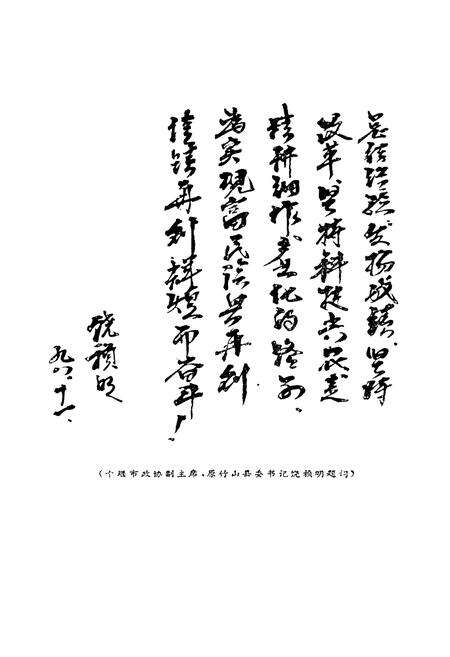 总结经验发扬成绩.坚持
改革坚持科技兴农走
精耕细作产业化的路子.
为实现富民强县再创
佳绩再创辉煌而奋斗!
饶 明
九八.十一.
(十堰市政协副主席、原竹山县委书记饶 明题词)